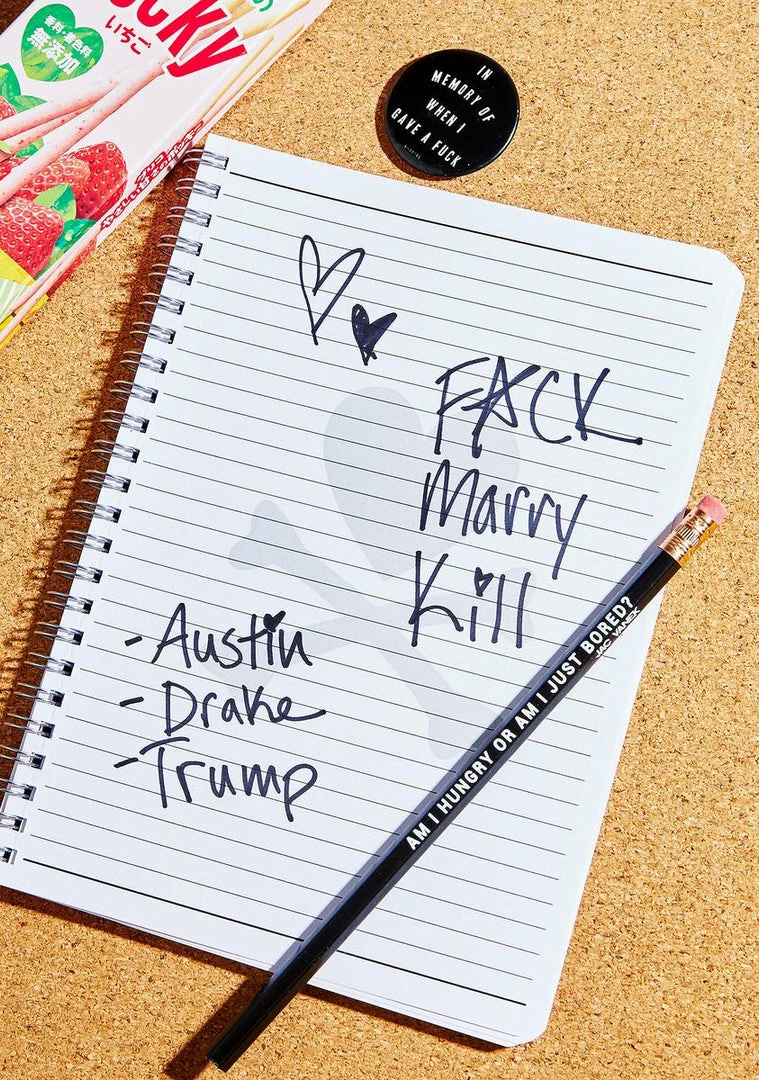 いちご
香料・着色料
無添加
IN
MEMORY OF
WHEN I
GAVE A FUCK
FACK
Marry
Kill
- Austin
- Drake
- Trump
AM I HUNGRY OR AM I JUST BORED?
JAC VANEK